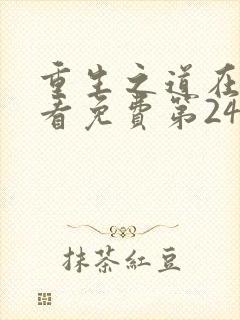 重生之道在
看免費第24
抹茶紅豆